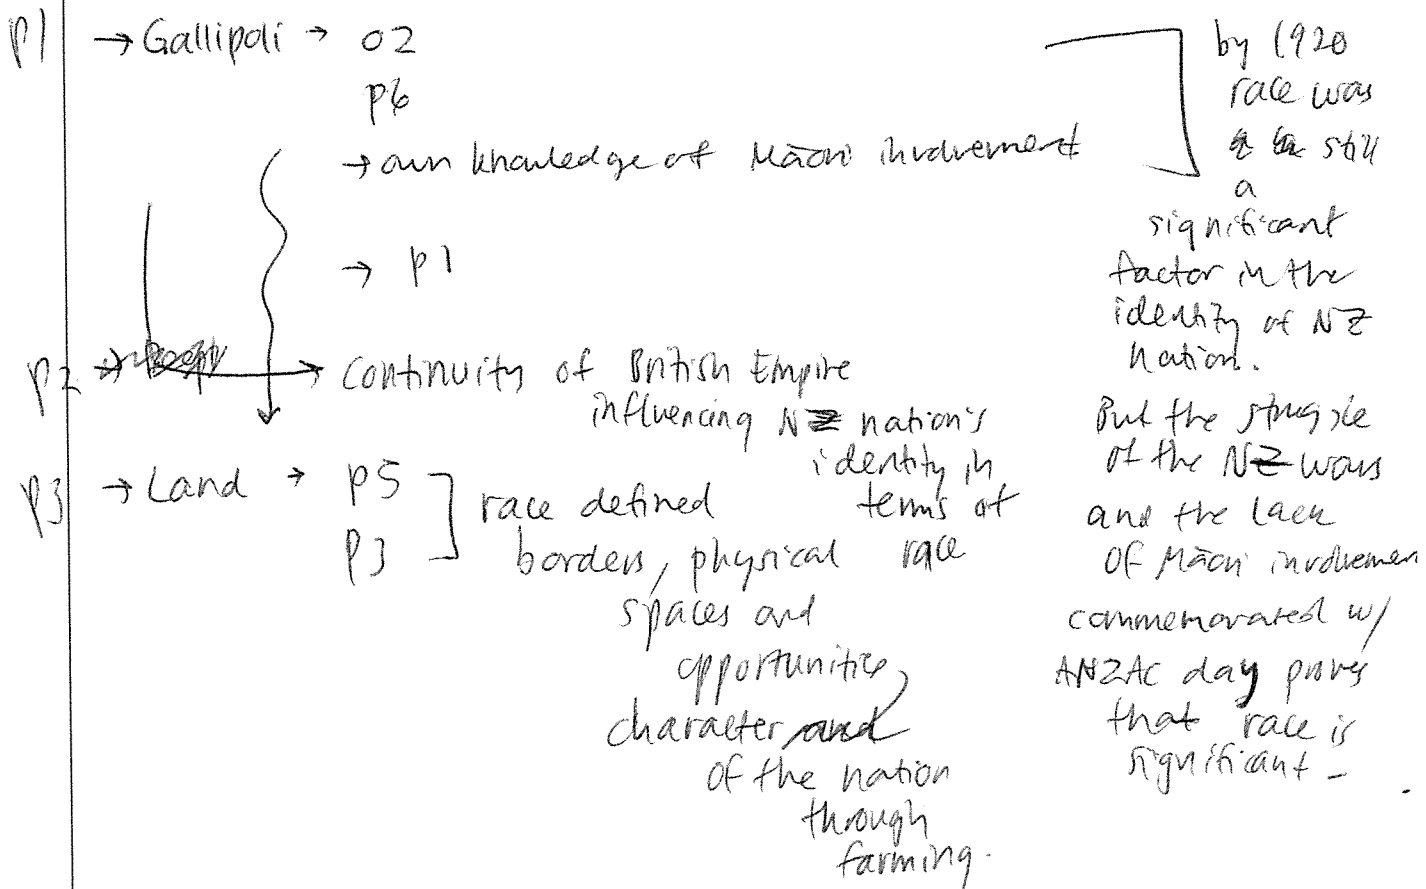 p1 → Gallipoli → 02
p6
→ own knowledge of Māori involvement
→ p1
p2 → continuity of British Empire
influencing NZ nation's
identity in
terms of
race
p3 → Land → p5
p3
race defined
borders, physical
spaces and
opportunities,
character
of the nation
through
farming.
by 1920
race was
still
a
significant
factor in the
identity of NZ
nation.
But the struggle
of the NZ wars
and the lack
of Māori involvemen
commemorated w/
ANZAC day proves
that race is
significant -